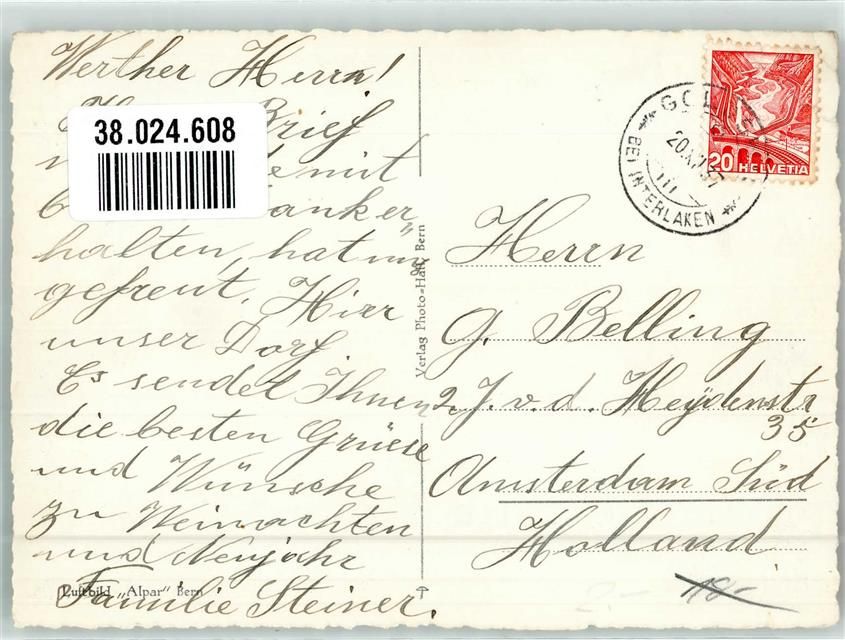 Werther Herrn!
Brief
mit
Danker
halten, hat mich
gefreut. Hier
unser Dorf
Es sendet Ihnen
die besten Grüese
und Wünsche
zu Weinachten
und Neujahr
Familie Steiner.
Luftbild "Alpar" Bern
38.024.608
Verlag Photo-Haus Bern
BEI INTERLAKEN
20
HELVETIA
Herrn
G. Belling
2. J. v. d. Heÿdenstr
35
Amsterdam Süd
Holland
18-
2-